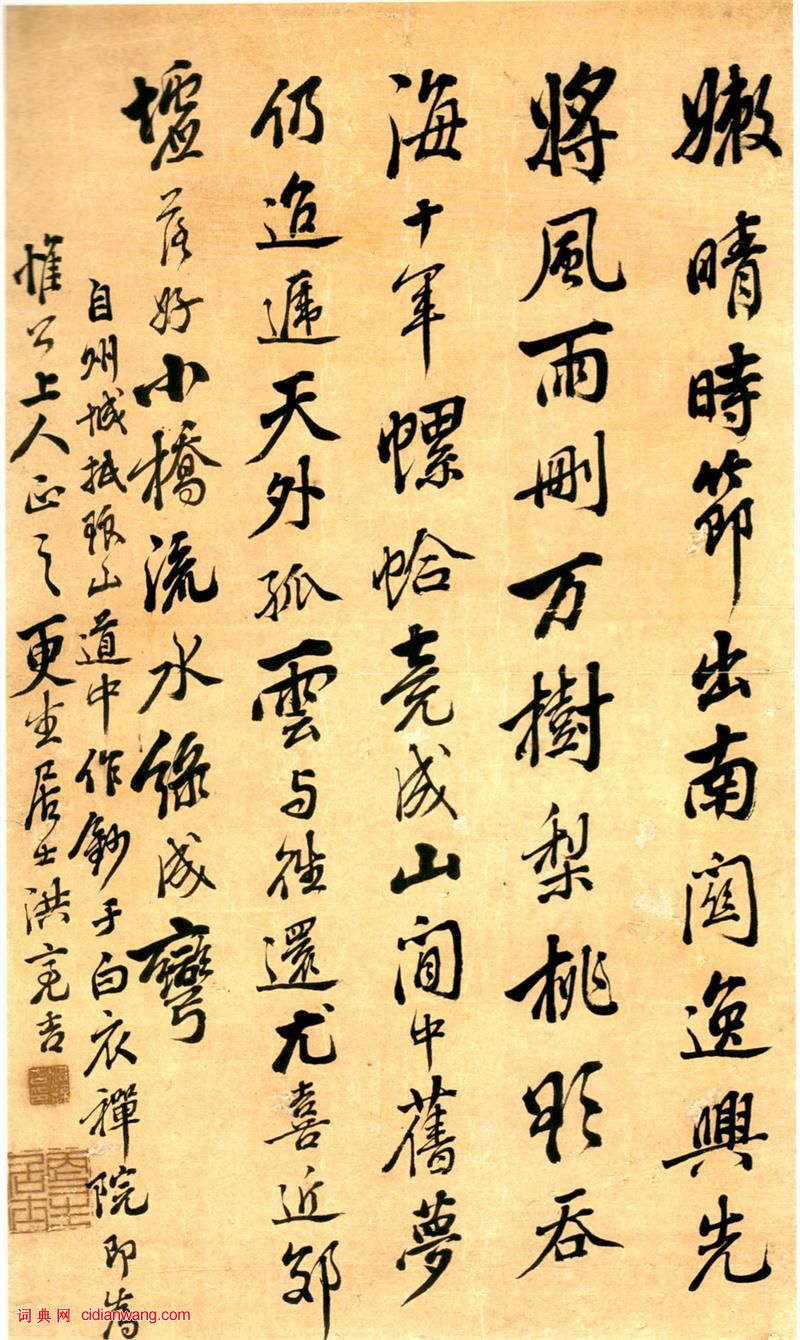 嫩晴時節出南関逸興先
將風雨刪万樹梨桃欲吞
海十年螺蛤竟成山間中舊夢
仍迢遞天外孤雲与往還尤喜近郊
墟落好小橋流水綠成彎
自州城抵琅山道中作鈔于白衣禪院即為
惟公上人正之更生居士洪亮吉
更生居士
词典网 cidianwang.com